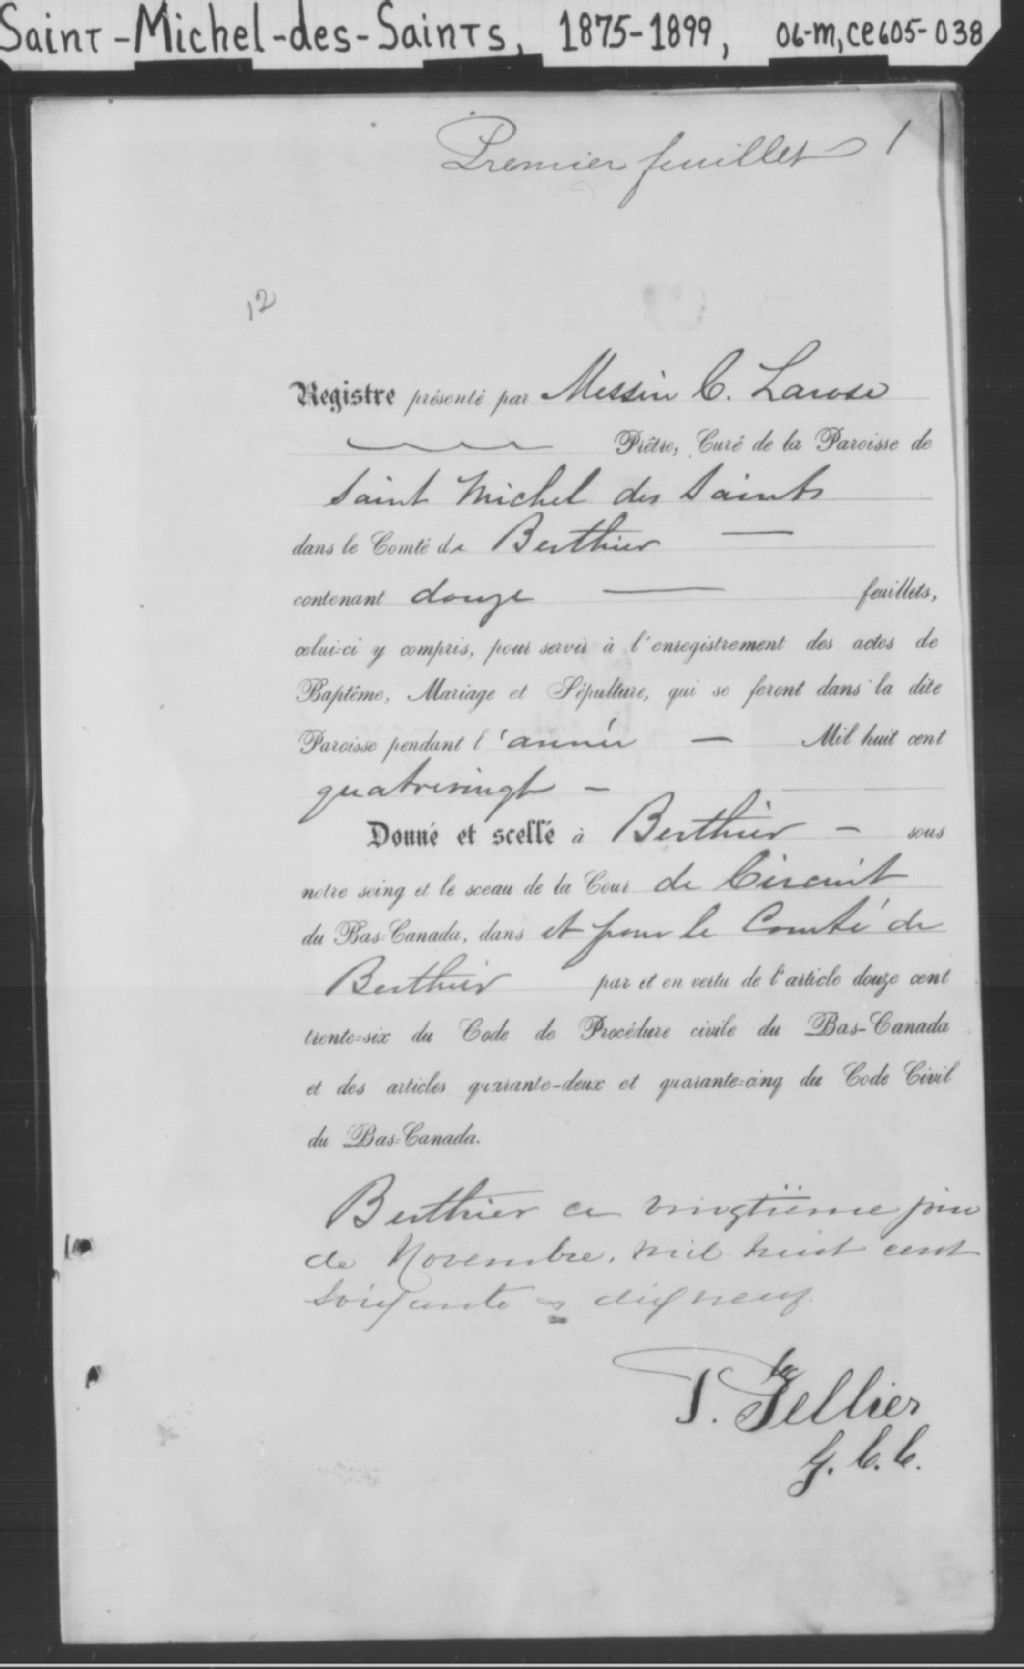 Saint-Michel-des-Saints, 1875-1899, 06-m,ce605-038
Premier feuillet 1
12
Registre présenté par Messire C. Larose
Prêtre, Curé de la Paroisse de
Saint Michel des Saints
dans le Comté de Berthier —
contenant douze — feuillets,
celui-ci y compris, pour servir à l'enregistrement des actes de
Baptême, Mariage et Sépulture, qui se feront dans la dite
Paroisse pendant l'année — Mil huit cent
quatrevingt —
Donné et scellé à Berthier — sous
notre seing et le sceau de la Cour de Circuit
du Bas-Canada, dans et pour le Comté de
Berthier par et en vertu de l'article douze cent
trente-six du Code de Procédure civile du Bas-Canada
et des articles quarante-deux et quarante-cinq du Code Civil
du Bas-Canada.
Berthier ce vingtième jour
de Novembre. mil huit cent
soixante & dix neuf.
P. Tellier
G. C. C.